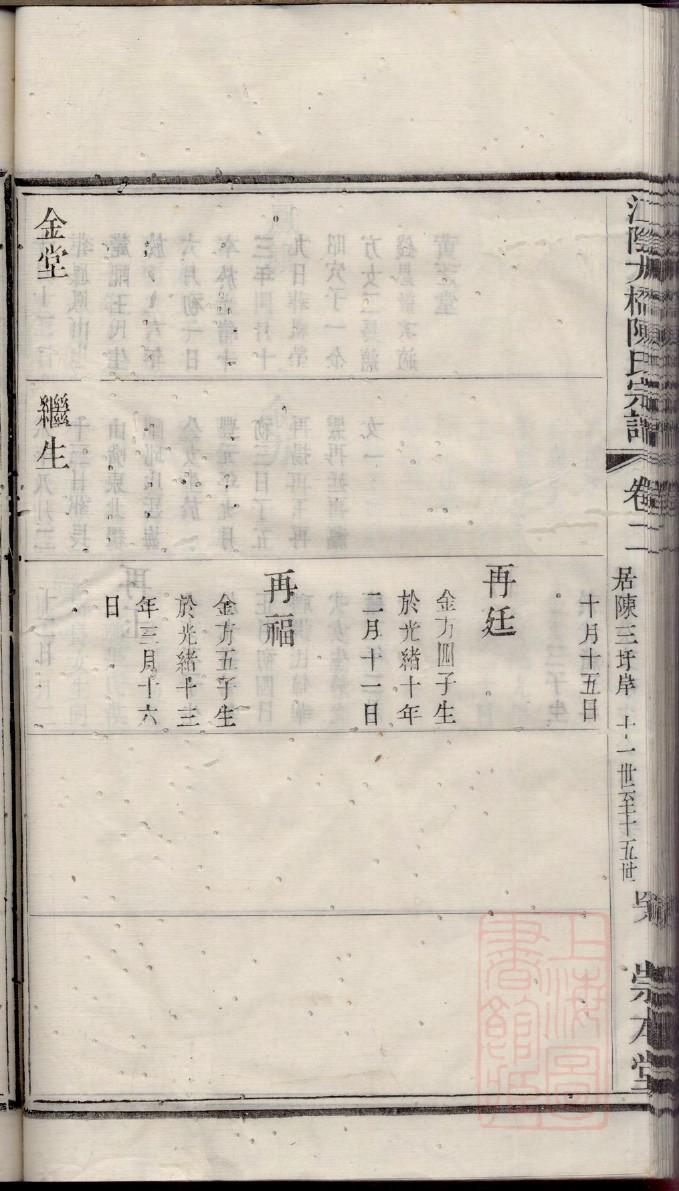 江陰大橋陳氏宗譜
卷二
居陳三圩岸
十一世至十五世
崇本堂
十月十五日
再廷
金方四子生
於光緒十年
二月十一日
再福
金方五子生
於光緒十三
年三月十六
日
金堂
繼生
上海圖
書館